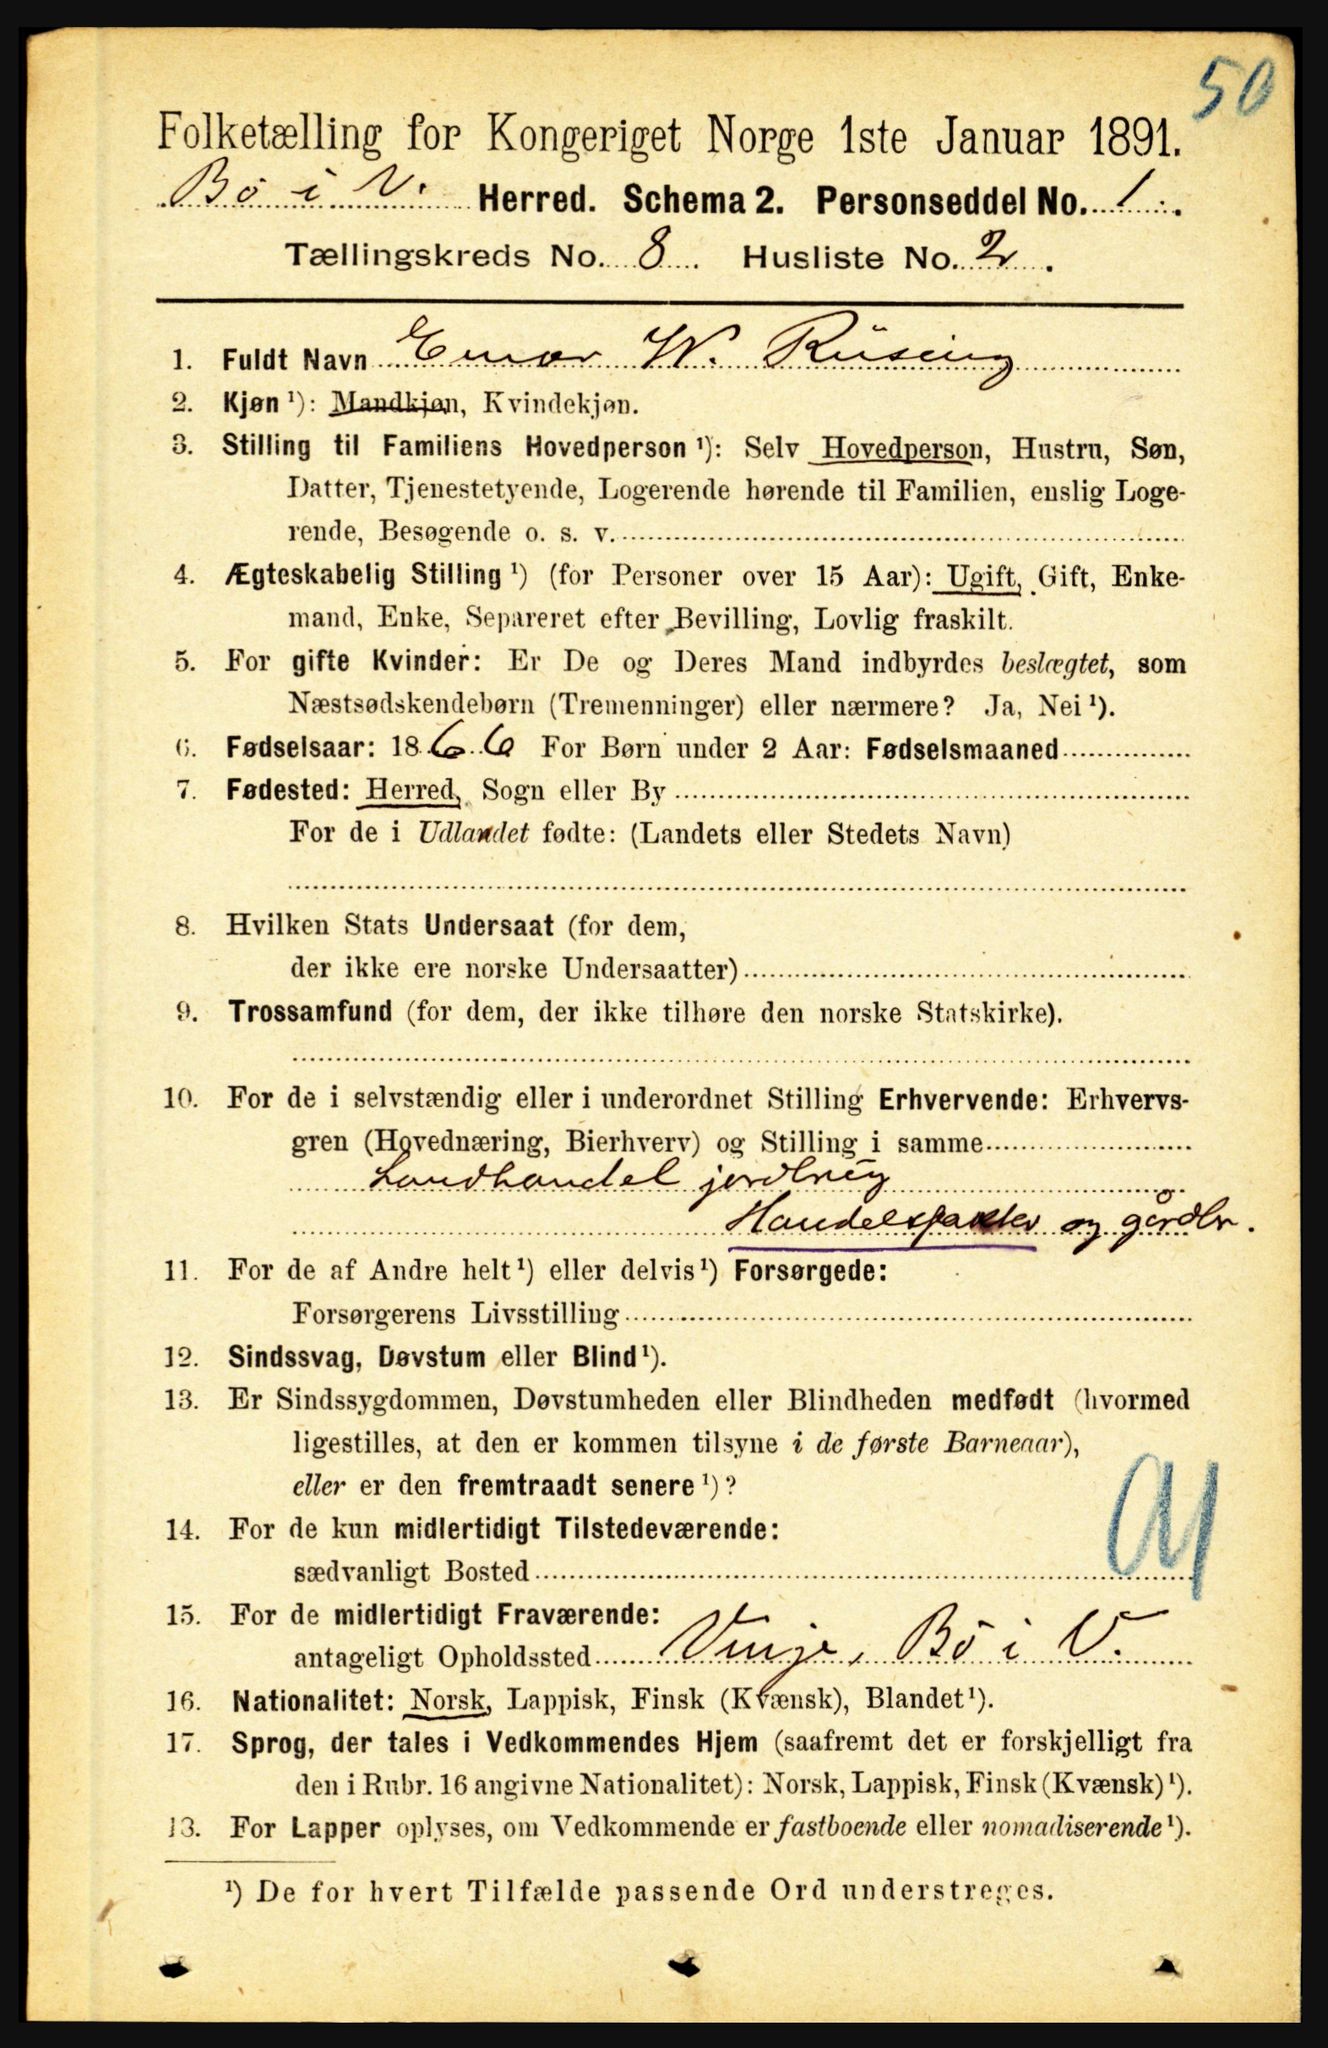 50
Folketælling for Kongeriget Norge 1ste Januar 1891.
Bö i V. Herred. Schema 2. Personseddel No. 1.
Tællingskreds No. 8. Husliste No. 2.
1. Fuldt Navn Einar W. Rüsing
2. Kjøn ¹): Mandkjøn, Kvindekjøn.
3. Stilling til Familiens Hovedperson ¹): Selv Hovedperson, Hustru, Søn,
Datter, Tjenestetyende, Logerende hørende til Familien, enslig Loge-
rende, Besøgende o. s. v.
4. Ægteskabelig Stilling ¹) (for Personer over 15 Aar): Ugift, Gift, Enke-
mand, Enke, Separeret efter Bevilling, Lovlig fraskilt.
5. For gifte Kvinder: Er De og Deres Mand indbyrdes beslægtet, som
Næstsødskendebørn (Tremenninger) eller nærmere? Ja, Nei ¹).
6. Fødselsaar: 1866 For Børn under 2 Aar: Fødselsmaaned
7. Fødested: Herred, Sogn eller By
For de i Udlandet fødte: (Landets eller Stedets Navn)
8. Hvilken Stats Undersaat (for dem,
der ikke ere norske Undersaatter)
9. Trossamfund (for dem, der ikke tilhøre den norske Statskirke).
10. For de i selvstændig eller i underordnet Stilling Erhvervende: Erhvervs-
gren (Hovednæring, Bierhverv) og Stilling i samme
Landhandel jordbrug
og gårdbr.
11. For de af Andre helt ¹) eller delvis ¹) Forsørgede:
Forsørgerens Livsstilling
12. Sindssvag, Døvstum eller Blind ¹).
13. Er Sindssygdommen, Døvstumheden eller Blindheden medfødt (hvormed
ligestilles, at den er kommen tilsyne i de første Barneaar),
eller er den fremtraadt senere ¹)?
14. For de kun midlertidigt Tilstedeværende:
sædvanligt Bosted
15. For de midlertidigt Fraværende:
antageligt Opholdssted Vinje, Bö i V.
16. Nationalitet: Norsk, Lappisk, Finsk (Kvænsk), Blandet ¹).
17. Sprog, der tales i Vedkommendes Hjem (saafremt det er forskjelligt fra
den i Rubr. 16 angivne Nationalitet): Norsk, Lappisk, Finsk (Kvænsk) ¹).
13. For Lapper oplyses, om Vedkommende er fastboende eller nomadiserende ¹).
¹) De for hvert Tilfælde passende Ord understreges.